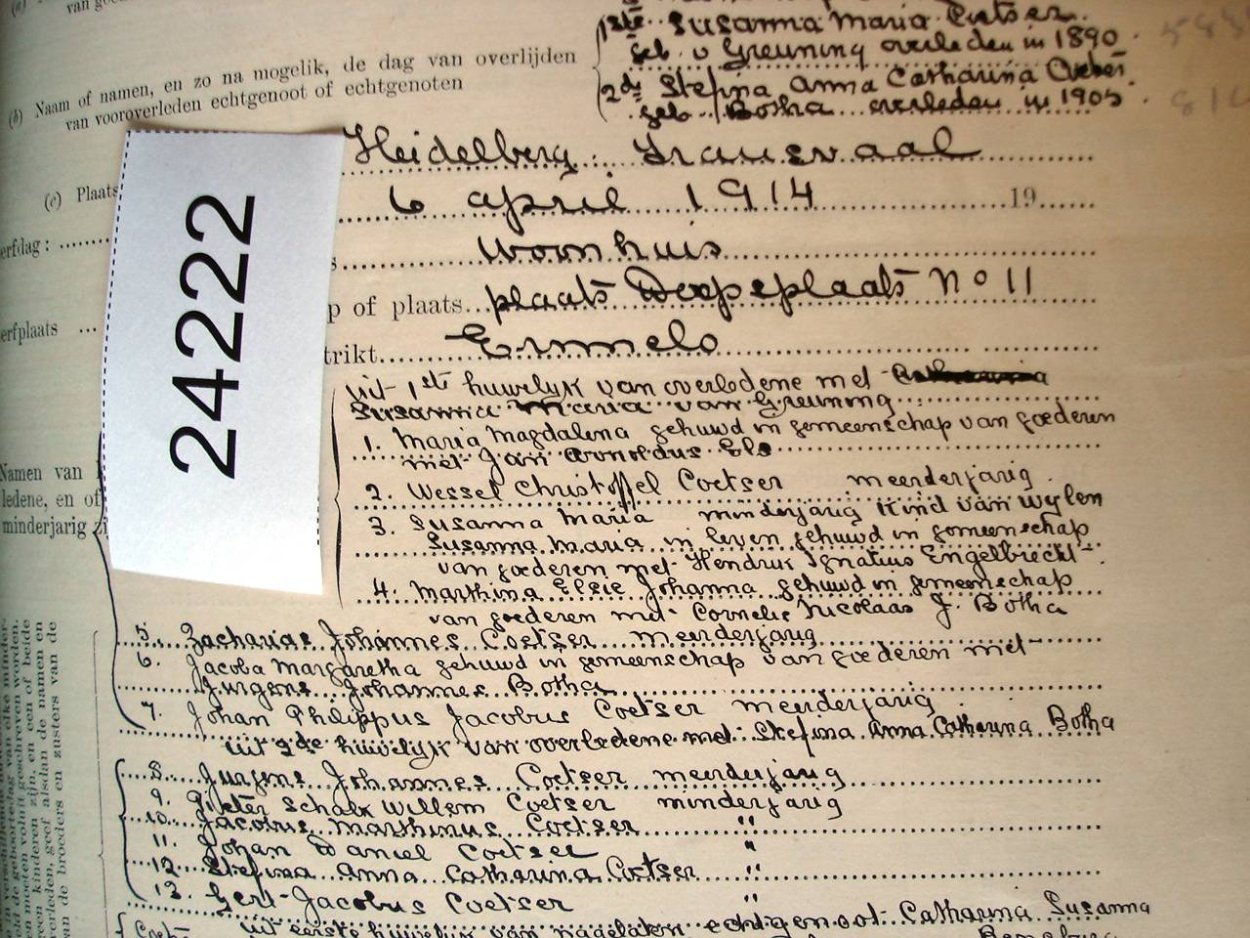 van
1ste Susanna Maria Coetser
(b) Naam of namen, en zo na mogelik, de dag van overlijden
van vooroverleden echtgenoot of echtgenoten
geb v Greuning overleden in 1890
2de Stefina Anna Catharina
geb Botha overleden in 1905
Heidelberg Transvaal
(c) Plaats
6 april 1914 19
erfdag :
Woonhuis
p of plaats plaats No 11
erfplaats
trikt Ermelo
24222
uit 1ste huwelyk van overledene met
Susanna Maria van Greuning
1. Maria Magdalena gehuwd in gemeenschap van goederen
met Jan Arnoldus Els
Namen van
ledene, en of
minderjarig zi
2. Wessel Christoffel Coetser meerderjarig
3. Susanna Maria minderjarig kind van wylen
Susanna Maria in leven gehuwd in gemeenschap
van goederen met Hendrik Ignatius Engelbrecht
4. Marthina Elsie Johanna gehuwd in gemeenschap
van goederen met Cornelis Nicolaas J. Botha
5. Zacharias Johannes Coetser meerderjarig
6. Jacoba Margaretha gehuwd in gemeenschap van goederen met
Jurgens Johannes Botha
7. Johan Philippus Jacobus Coetser meerderjarig
uit 2de huwelyk van overledene met Stefina Anna Catharina Botha
8. Jurgens Johannes Coetser meerderjarig
9. Schalk Willem Coetser minderjarig
10. Jacobus Marthinus Coetser "
11. Johan Daniel Coetser "
12. Stefina Anna Catharina Coetser "
13. Gert Jacobus Coetser "
uit eerste huwelyk van nagelaten echtgenoot Catharina Susanna
elke minder-
worden,
een of beide
ren kinderen zijn, en
verleden, geef alsdan de namen en
van de broeders en zusters van de